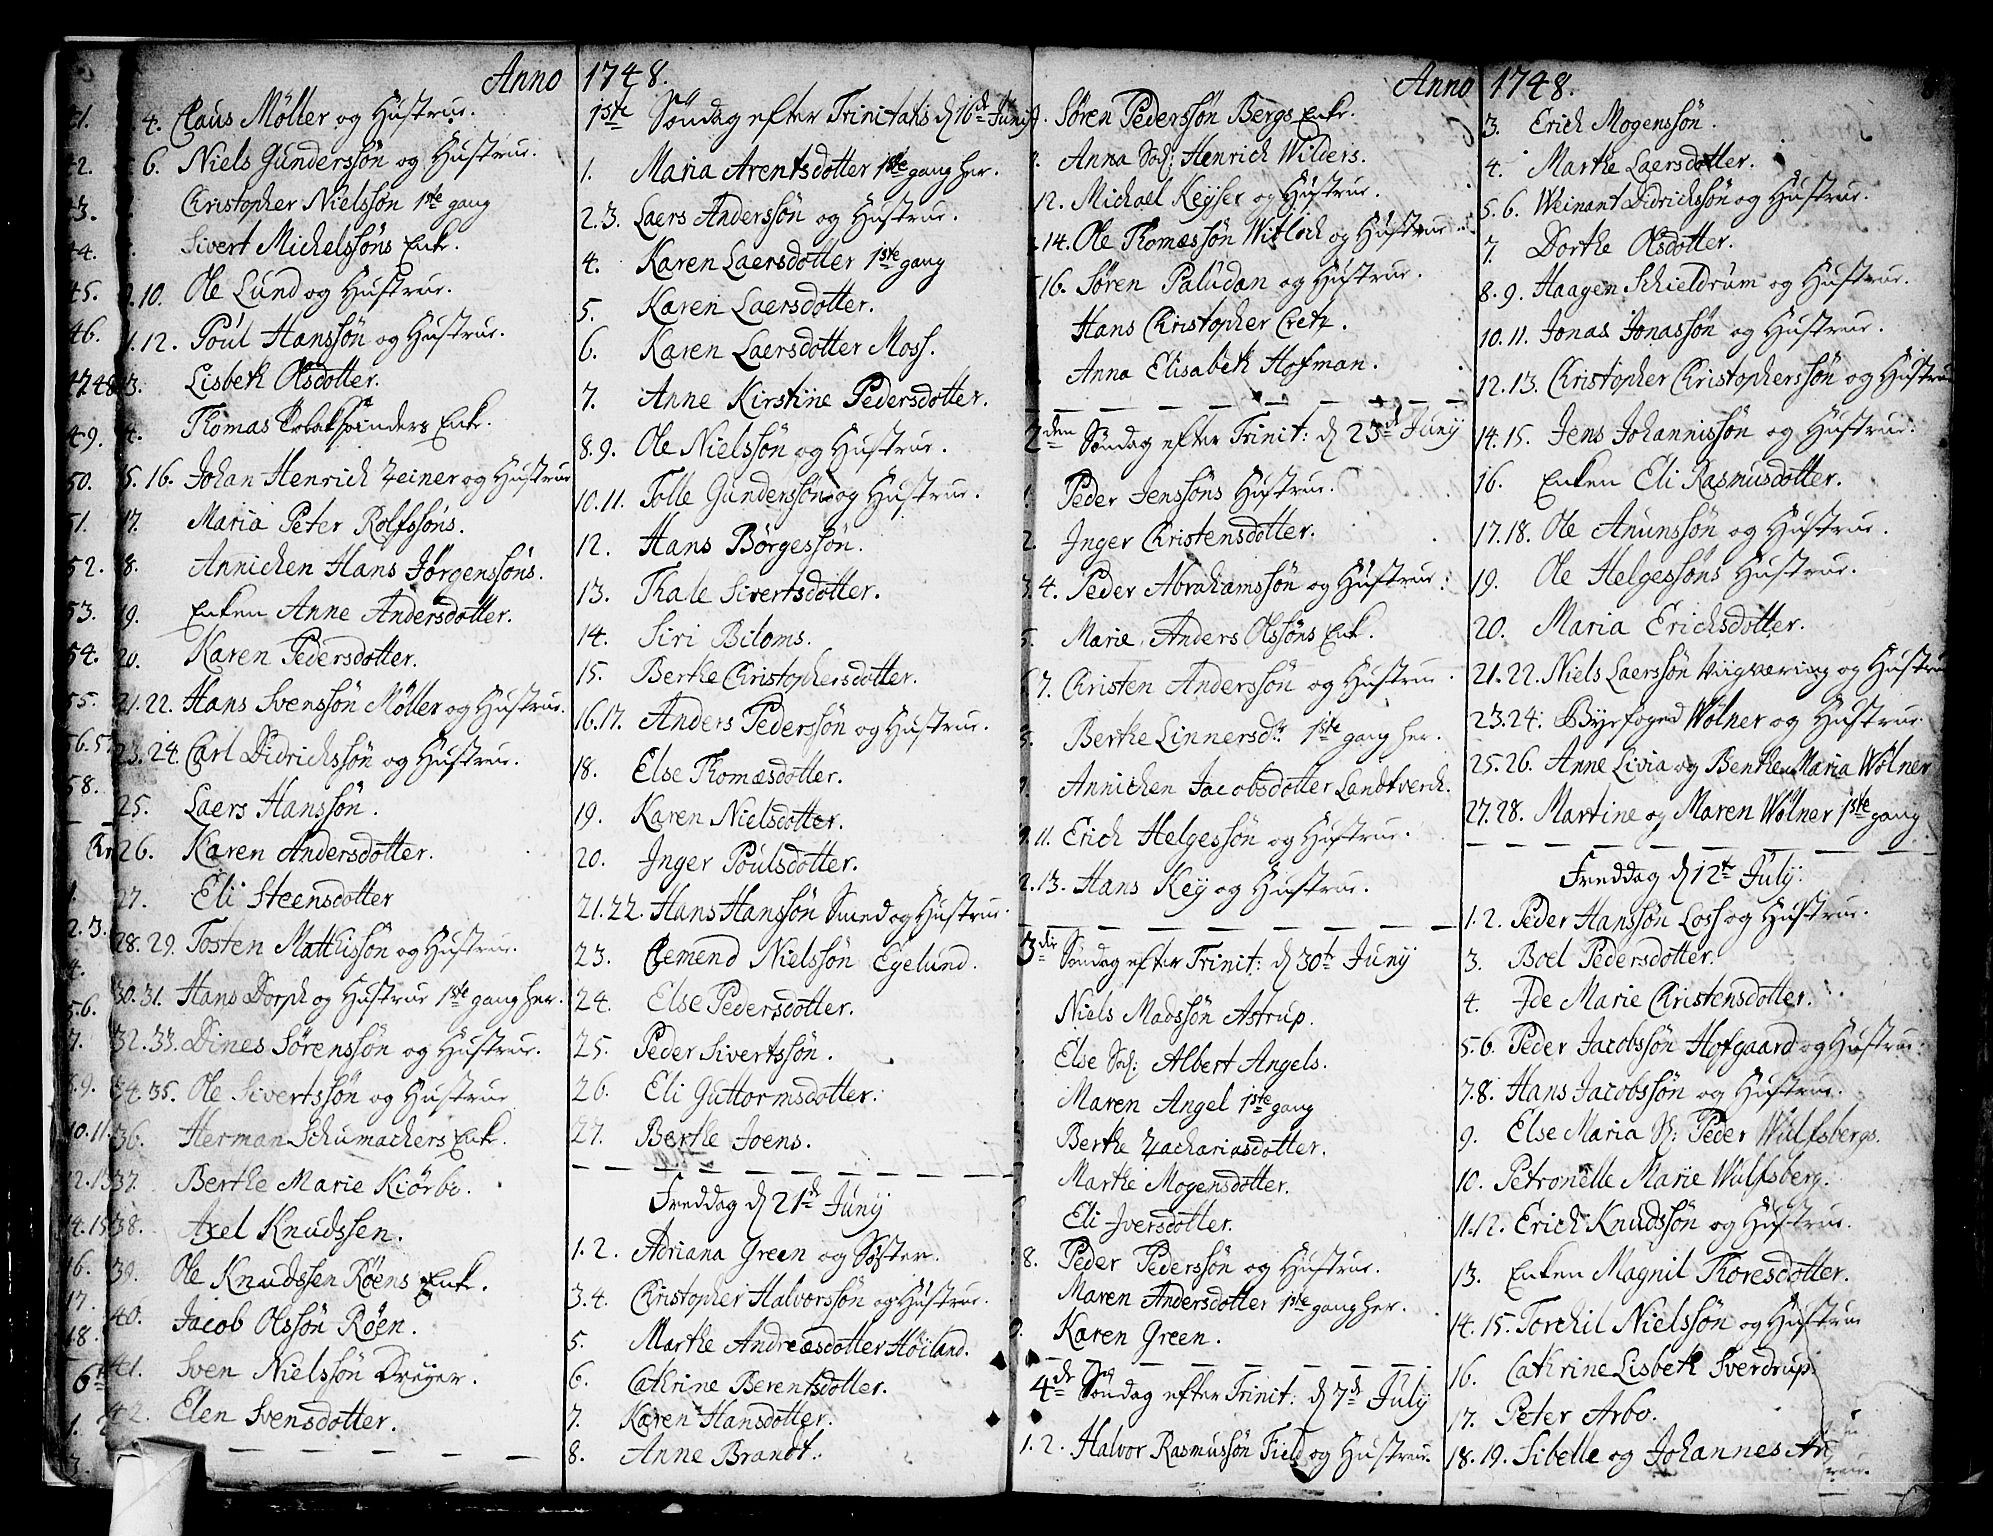 Anno 1748.
4. Claus Möller og Hustrue.
6. Niels Gunderssön og Hustrue.
Christopher Nielssön 1ste gang
Sivert Michelssöns Enke.
10. Ole Lund og Hustrue.
12. Poul Hanssön og Hustrue.
Lisbeth Olsdotter.
Thomas Enke.
5. 16. Johan Henrich Zeiner og Hustrue
17. Maria Peter Rolfssöns.
8. Annichen Hans Jörgenssöns.
19. Enken Anne Andersdotter.
20. Karen Pedersdotter.
21. 22. Hans Svenssön Möller og Hustrue.
23. 24. Carl Didrichssön og Hustrue.
25. Laers Hanssön.
26. Karen Andersdotter.
27. Eli Steensdotter
28. 29. Tosten Matthissön og Hustrue.
30. 31. Hans Dorph og Hustrue 1ste gang her.
32. 33. Dines Sörenssön og Hustrue.
34. 35. Ole Sivertssön og Hustrue
36. Herman Schumachers Enke.
37. Berthe Marie Kiörbo.
38. Axel Knudssen.
39. Ole Knudssen Röens Enke.
40. Jacob Olssön Röen.
41. Sven Nielssön Dreyer.
42. Elen Svensdotter.
1ste Söndag efter Trinitatis d 16de Junij
1. Maria Arentsdotter 1ste gang her.
2. 3. Laers Anderssön og Hustrue.
4. Karen Laersdotter 1ste gang
5. Karen Laersdotter.
6. Karen Laersdotter Moss.
7. Anne Kirstine Pedersdotter.
8. 9. Ole Nielssön og Hustrue.
10. 11. Tolle Gunderssön og Hustrue.
12. Hans Börgessön.
13. Thale Sivertsdotter.
14. Siri Biloms.
15. Berthe Christophersdotter.
16. 17. Anders Pederssön og Hustrue.
18. Else Thomæsdotter.
19. Karen Nielsdotter.
20. Inger Poulsdotter.
21. 22. Hans Hanssön Smed og Hustrue.
23. Clemend Nielssön Egelund.
24. Else Pedersdotter.
25. Peder Sivertssön.
26. Eli Guttormsdotter.
27. Berthe Joens.
Freddag d 21de Junij
1. 2. Adriana Green og Söster.
3. 4. Christopher Halvorssön og Hustrue.
5. Marthe Andreasdotter Höiland.
6. Cathrine Berentsdotter.
7. Karen Hansdotter.
8. Anne Brandt.
Anno 1748.
9. Sören Pederssön Bergs Enke.
Anna Sal: Henrich Wilders.
12. Michael Keyser og Hustrue.
14. Ole Thomæssön Witloch og Hustrue
16. Sören Paludan og Hustrue.
Hans Christopher Cretz.
Anna Elisabeth Hofman.
2den Söndag efter Trinit: d 23de Junij
1. Peder Jenssöns Hustrue.
2. Inger Christensdotter.
3. 4. Peder Abrahamssön og Hustrue.
5. Marie Anders Olssöns Enke.
7. Christen Anderssön og Hustrue.
8. Berthe Linnersdtr 1ste gang her.
9. Annichen Jacobsdotter Landtverch.
11. Erich Helgessön og Hustrue.
2. 13. Hans Key og Hustrue.
3die Söndag efter Trinit: d 30te Junij
Niels Madssön Astrup.
Else Sal: Albert Angels.
Maren Angel 1ste gang
Berthe Zachariasdotter.
Marthe Mogensdotter.
Eli Iversdotter.
8. Peder Pederssön og Hustrue.
Maren Andersdotter 1ste gang her.
Karen Green.
4de Söndag efter Trinit: d 7de July
1. 2. Halvor Rasmussön Field og Hustrue.
3. Erich Mogenssön.
4. Marthe Laersdotter.
5. 6. Weinant Didrichssön og Hustrue.
7. Dorthe Olsdotter.
8. 9. Haagen Schieldrum og Hustrue.
10. 11. Jonas Jonassön og Hustrue.
12. 13. Christopher Christopherssön og Hustrue
14. 15. Jens Johannissön og Hustrue.
16. Enken Eli Rasmusdotter.
17. 18. Ole Anunssön og Hustrue.
19. Ole Helgessöns Hustrue.
20. Maria Erichsdotter.
21. 22. Niels Laerssön Viigværing og Hustrue
23. 24. Byefoged Wölner og Hustrue
25. 26. Anne Livia og Benthe Maria Wölner
27. 28. Martine og Maren Wölner 1ste gang
Freddag d 12te July.
1. 2. Peder Hanssön Loss og Hustrue.
3. Boel Pedersdotter.
4. Ide Marie Christensdotter.
5. 6. Peder Jacobssön Hofgaard og Hustrue.
7. 8. Hans Jacobssön og Hustrue.
9. Else Maria Sl: Peder Wulfsbergs.
10. Petronelle Marie Wulfsberg.
11. 12. Erich Knudssön og Hustrue.
13. Enken Magnil Thoresdotter.
14. 15. Torchil Nielssön og Hustrue
16. Cathrine Lisbeth Sverdrup.
17. Peter Arbo.
18. 19. Sibelle og Johannes